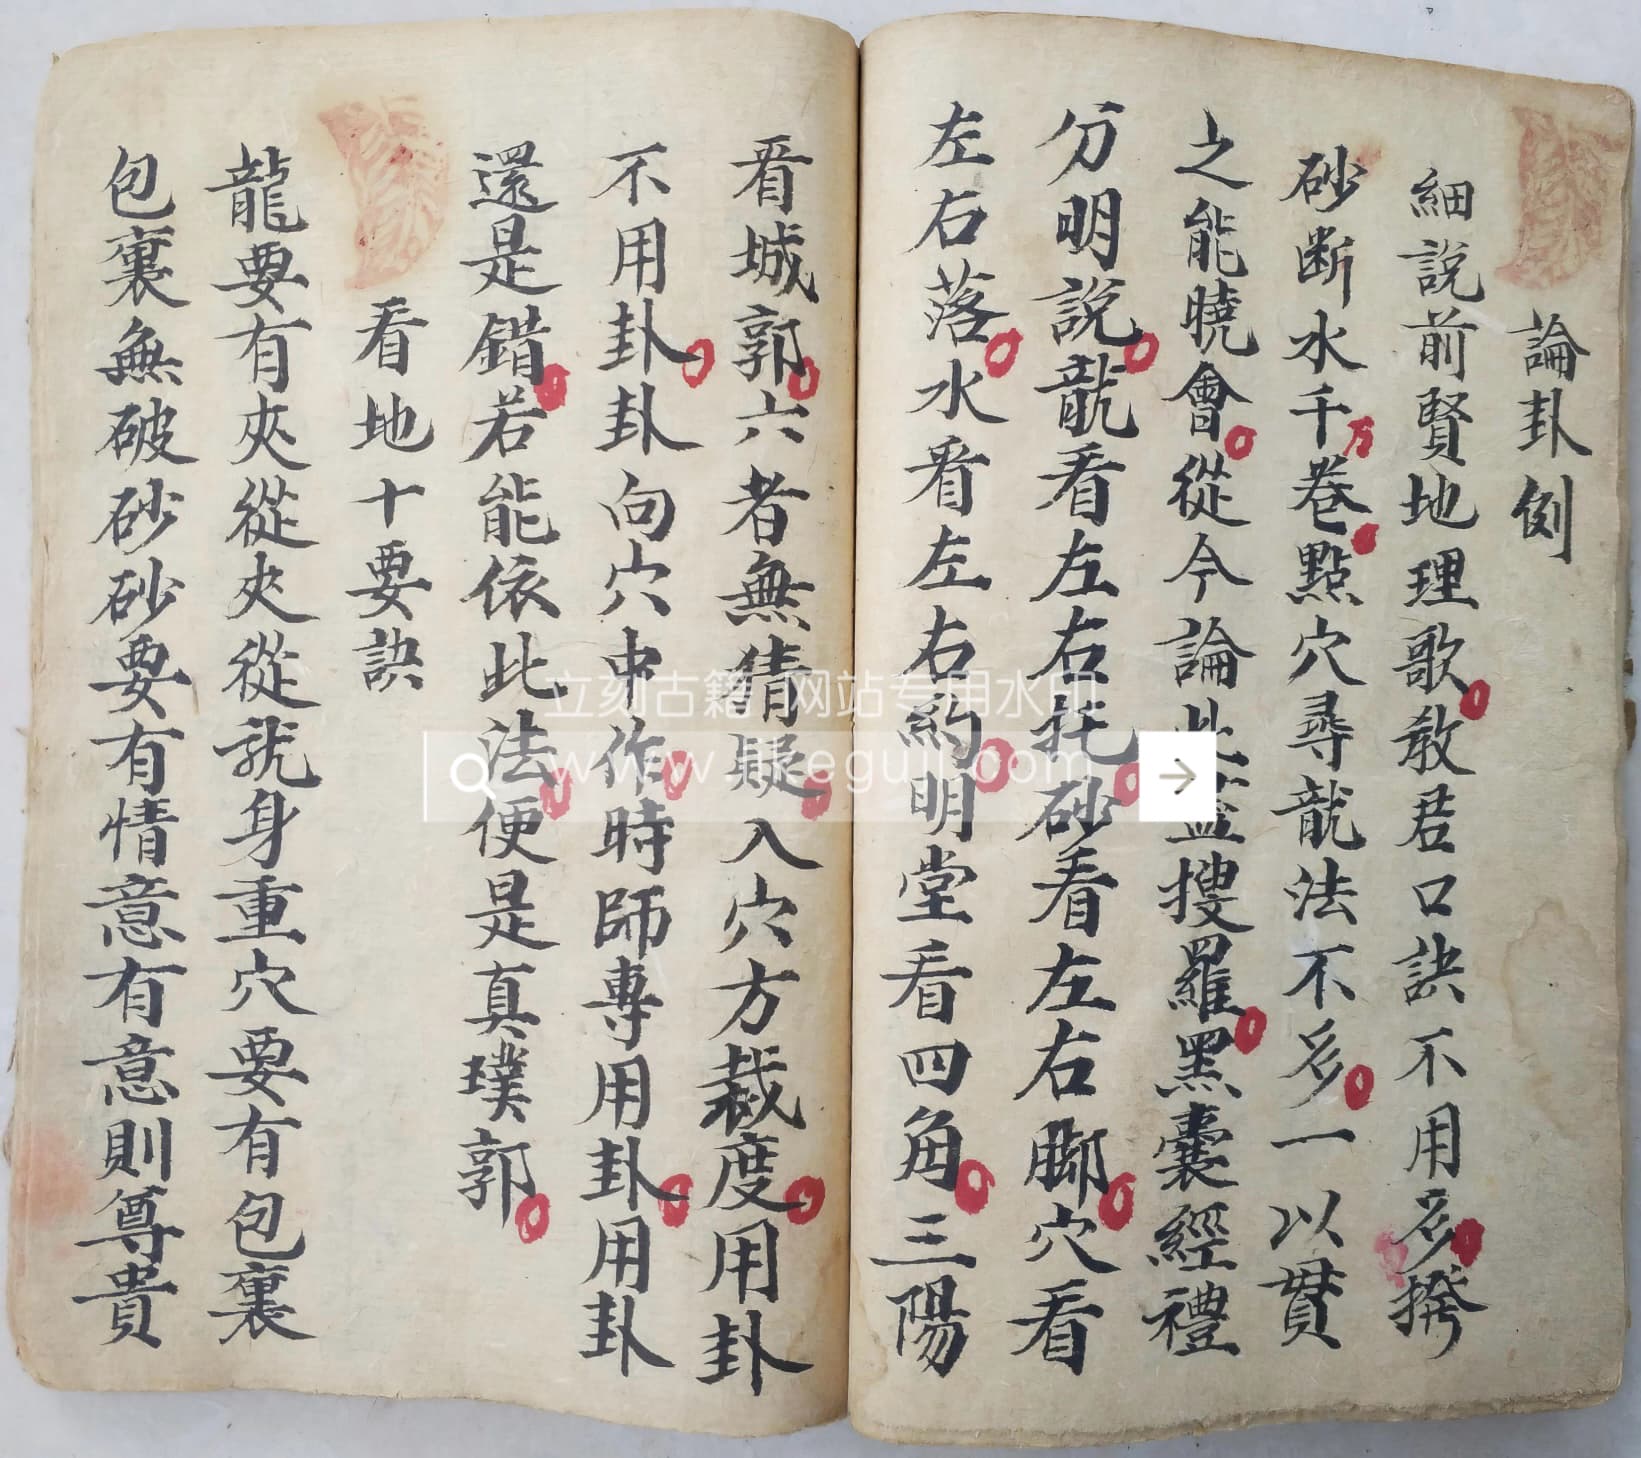 論卦例
細説前賢地理歌教君口訣不用多撥
砂断水千万卷點穴尋龍法不多一以貫
之能曉會從今論此盡搜羅黑囊經禮
分明說龍看左右托砂看左右脚穴看
左右落水看左右約明堂看四角三陽
看城郭六者無猜疑入穴方裁度用卦
不用卦卦向穴中作時師專用卦用卦
還是錯若能依此法便是真璞郭
看地十要訣
龍要有夾從夾從龍身重穴要有包裹
包裹無破砂砂要有情意有意則尊貴
立刻古籍 网站专用水印
www.likeguji.com